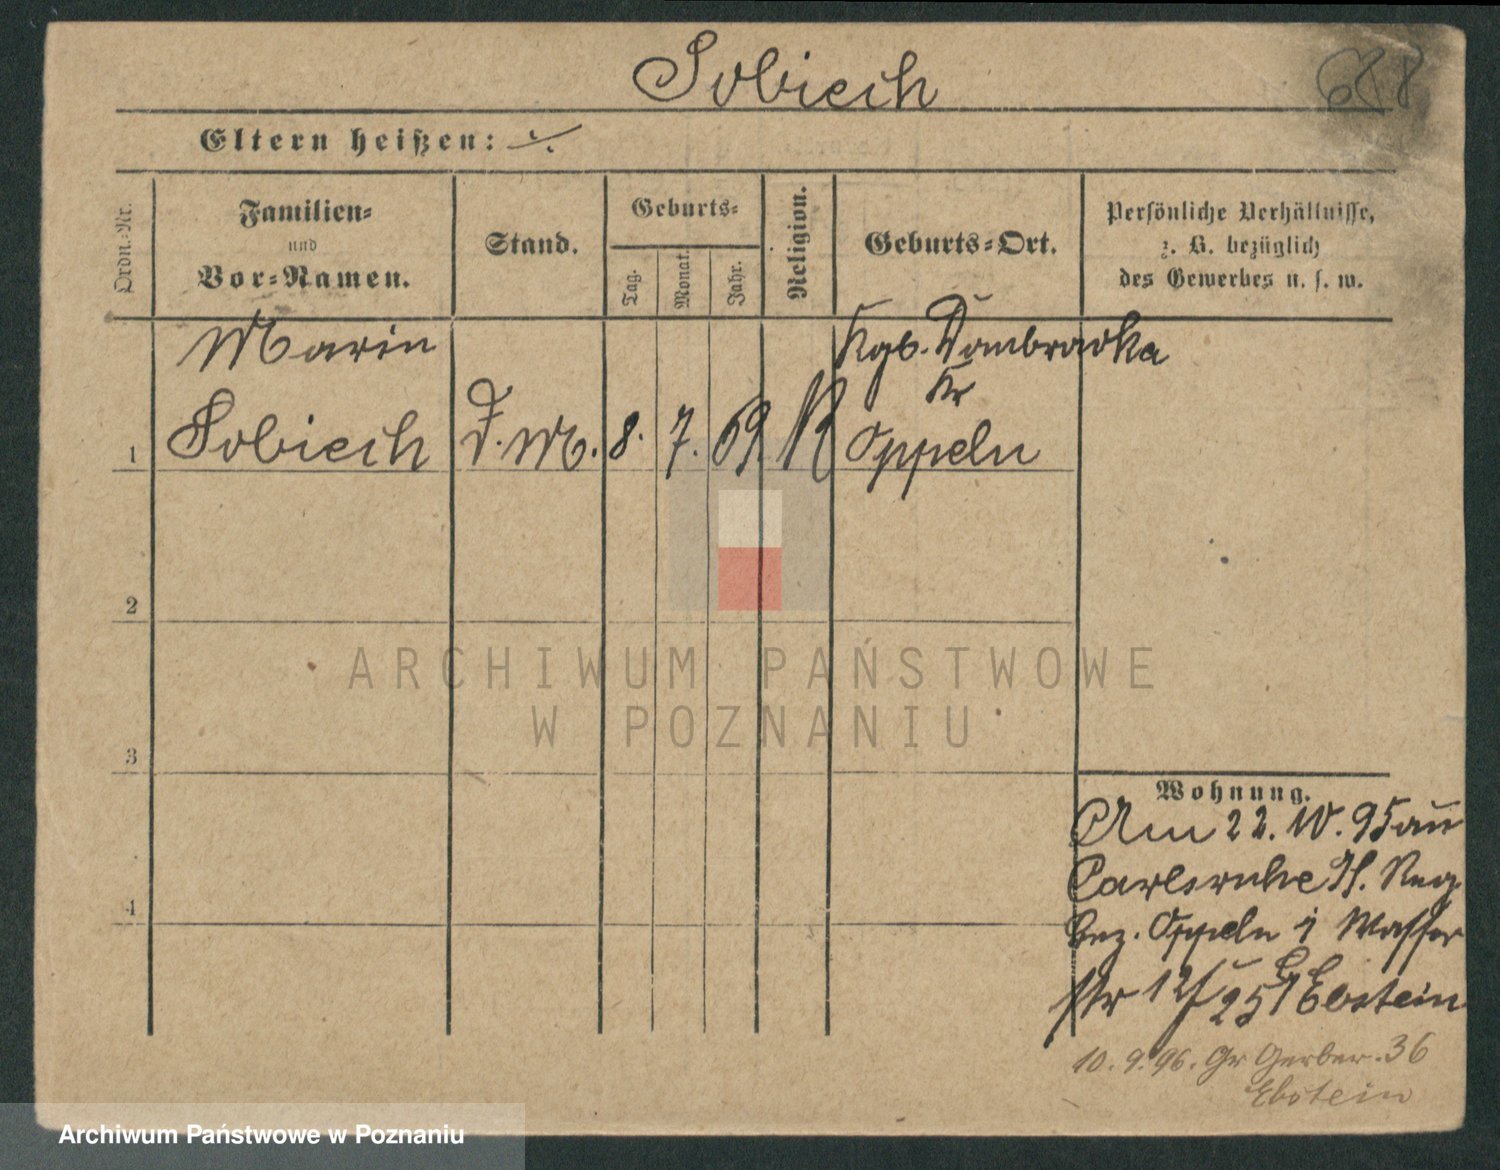 Sobiech
Eltern heißen: ./.
Ordn.-Nr.
Familien-
und
Vor-Namen.
Stand.
Geburts-
Tag.
Monat.
Jahr.
Religion.
Geburts-Ort.
Persönliche Verhältnisse,
z. B. bezüglich
des Gewerbes u. s. w.
Marie
Kgb. Dombrowka
Kr
1 Sobiech D. M. 8. 7. 69 K Oppeln
2
3
4
Wohnung.
Am 22. 10. 95 aus
Carlsruhe Reg
bez. Oppeln Wasser
str 12 25 Ebstein
10. 9. 96. Gr Gerber. 36
Ebstein
ARCHIWUM PAŃSTWOWE
W POZNANIU
Archiwum Państwowe w Poznaniu